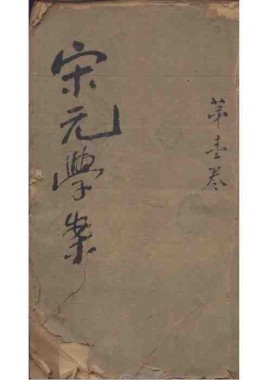 宋元學案
第壹卷